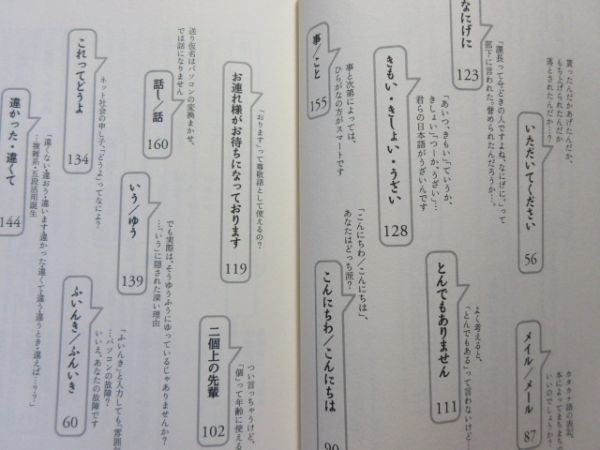 貰ったんだかあげたんだか、
もち上げられたんだか
落とされたんだか…？
いただいてください
56
カタカナ語の表記、
本によってまちまちで
いいのでしょうか？
メイル／メール
87
なにげに
123
「課長って今どきの人ですよね、なにげに。」って
部下に言われた。誉められたんだろうか…。
きもい・きしょい・うざい
128
「あいつ、きもい」ていうか、
きしょい」つーか、うざい」…
君らの日本語がうざいんです
とんでもありません
111
よく考えると、
「とんでもある」って言わないけど…
事／こと
155
事と次第によっては、
ひらがなの方がスマートです
こんにちわ／こんにちは
90
「こんにちわ／こんにちは」、
あなたはどっち派？
お連れ様がお待ちになっております
119
「おります」って尊敬語として使えるの？
二個上の先輩
102
つい言っちゃうけど、
「個」って年齢に使える
話し／話
160
送り仮名はパソコンの変換まかせ、
では話になりません
いう／ゆう
139
でも実際は、そうゆうふうにゆっているじゃありませんか？
…「いう」に隠された深い理由
これってどうよ
134
ネット社会の申し子、「どうよ」ってなによ？
ふいんき／ふんいき
60
「ふいんき」と入力しても、雰囲
…パソコンの故障？
いいえ、あなたの故障です
違かった・違くて
144
「違くない違おう・違います違かった・違くて違う違うとき・違えば…？？」
…複雑系・五段活用誕生